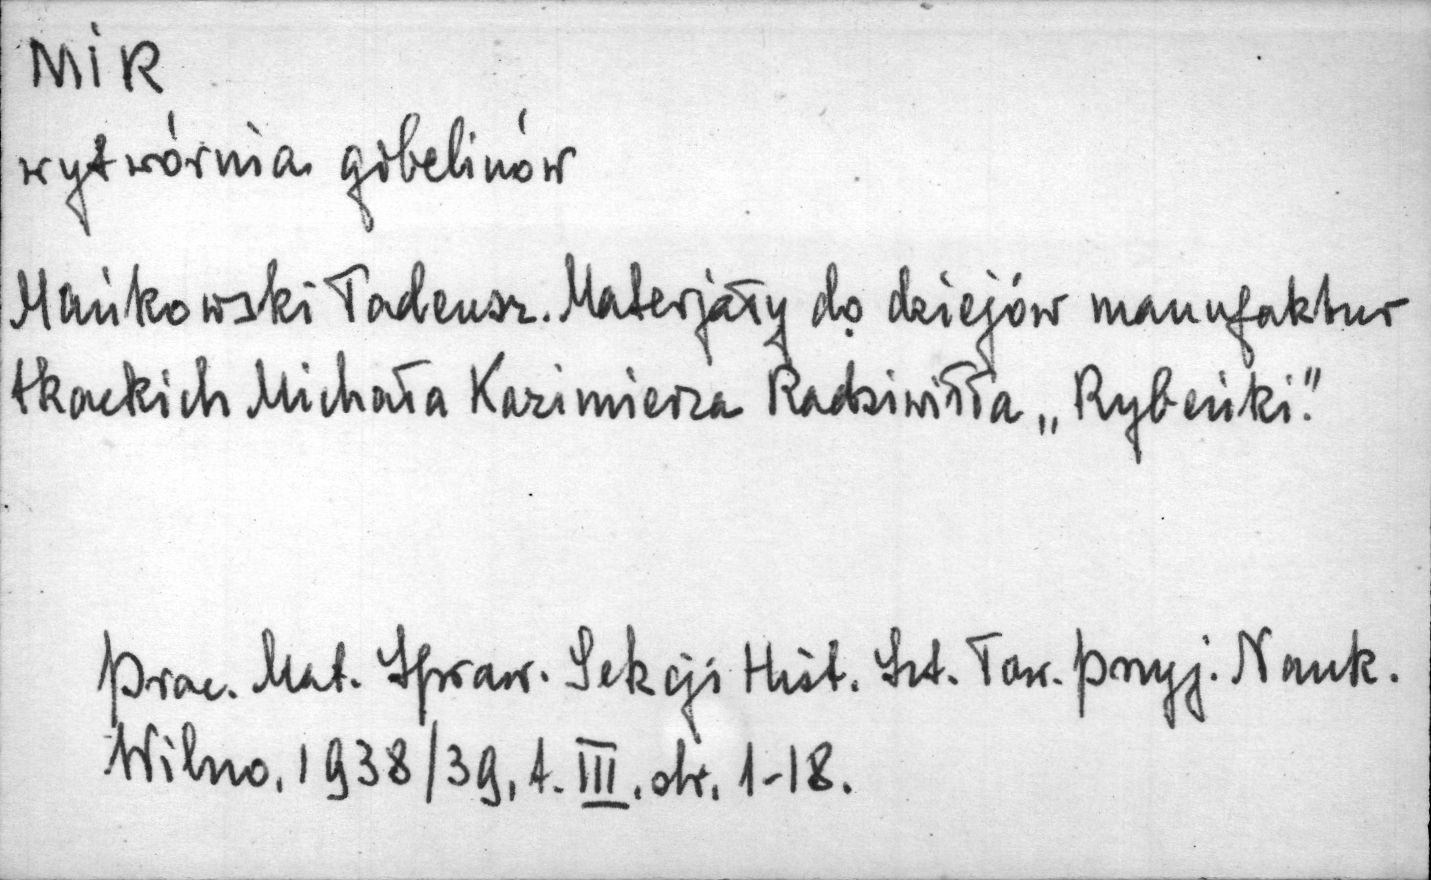 MIR
wytwórnia gobelinów
Mańkowski Tadeusz. Materjały do dziejów manufaktur
tkackich Michała Kazimierza Radziwiłła „Rybeńki."
Prac. Mat. Spraw. Sekcji Hist. Szt. Tow. Przyj. Nauk.
Wilno, 1938/39, t. III, str. 1-18.